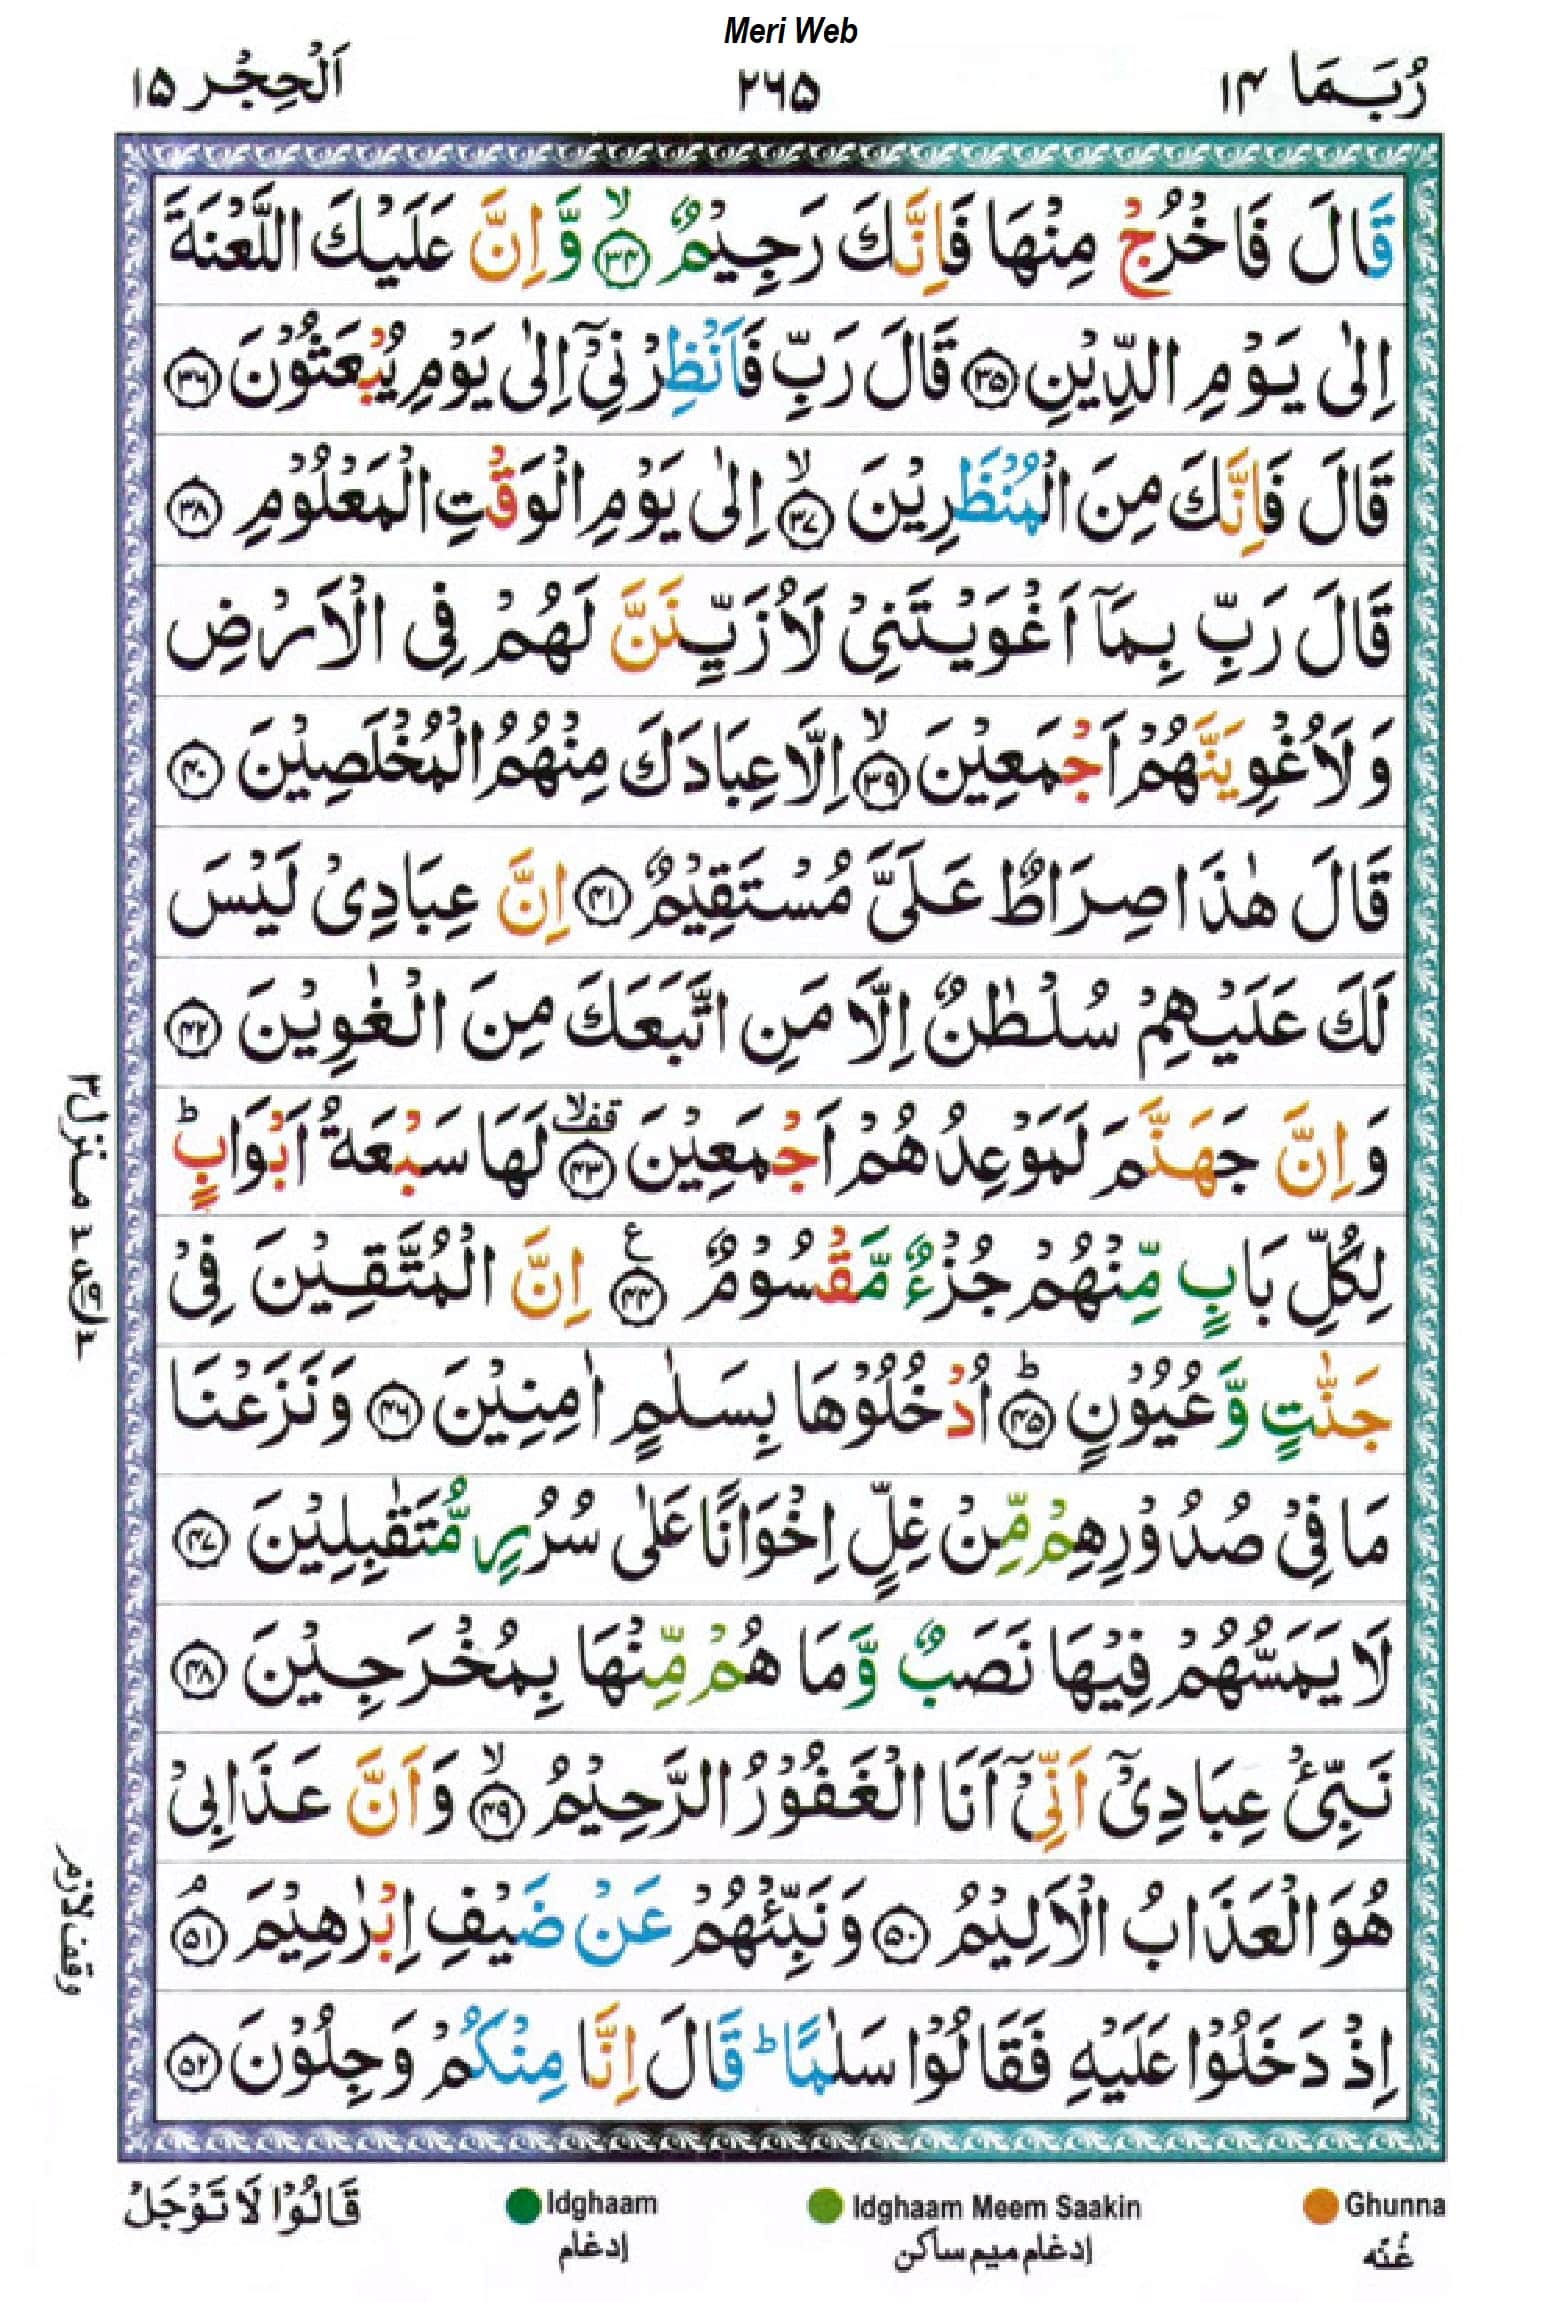 Meri Web
رُبَمَا ١۴
٢٦۵
اَلْحِجْر ١۵
قَالَ فَاخْرُجْ مِنْهَا فَاِنَّكَ رَجِيْمٌ ۙ‏﴿۳۴﴾ وَّاِنَّ عَلَيْكَ اللَّعْنَةَ
اِلٰى يَوْمِ الدِّيْنِ ﴿۳۵﴾ قَالَ رَبِّ فَاَنْظِرْنِيْٓ اِلٰى يَوْمِ يُبْعَثُوْنَ ﴿۳۶﴾
قَالَ فَاِنَّكَ مِنَ الْمُنْظَرِيْنَ ۙ﴿۳۷﴾ اِلٰى يَوْمِ الْوَقْتِ الْمَعْلُوْمِ ﴿۳۸﴾
قَالَ رَبِّ بِمَآ اَغْوَيْتَنِيْ لَاُزَيِّنَنَّ لَهُمْ فِى الْاَرْضِ
وَلَاُغْوِيَنَّهُمْ اَجْمَعِيْنَ ۙ﴿۳۹﴾ اِلَّا عِبَادَكَ مِنْهُمُ الْمُخْلَصِيْنَ ﴿۴۰﴾
قَالَ هٰذَا صِرَاطٌ عَلَيَّ مُسْتَقِيْمٌ ﴿۴۱﴾ اِنَّ عِبَادِيْ لَيْسَ
لَكَ عَلَيْهِمْ سُلْطٰنٌ اِلَّا مَنِ اتَّبَعَكَ مِنَ الْغٰوِيْنَ ﴿۴۲﴾
وَاِنَّ جَهَنَّمَ لَمَوْعِدُهُمْ اَجْمَعِيْنَ قف ۙ﴿۴۳﴾ لَهَا سَبْعَةُ اَبْوَابٍ ؕ
لِكُلِّ بَابٍ مِّنْهُمْ جُزْءٌ مَّقْسُوْمٌ ع ﴿۴۴﴾ اِنَّ الْمُتَّقِيْنَ فِيْ
جَنّٰتٍ وَّعُيُوْنٍ ؕ﴿۴۵﴾ اُدْخُلُوْهَا بِسَلٰمٍ اٰمِنِيْنَ ﴿۴۶﴾ وَنَزَعْنَا
مَا فِيْ صُدُوْرِهِمْ مِّنْ غِلٍّ اِخْوَانًا عَلٰى سُرُرٍ مُّتَقٰبِلِيْنَ ﴿۴۷﴾
لَا يَمَسُّهُمْ فِيْهَا نَصَبٌ وَّمَا هُمْ مِّنْهَا بِمُخْرَجِيْنَ ﴿۴۸﴾
نَبِّئْ عِبَادِيْٓ اَنِّيْٓ اَنَا الْغَفُوْرُ الرَّحِيْمُ ۙ﴿۴۹﴾ وَاَنَّ عَذَابِيْ
هُوَ الْعَذَابُ الْاَلِيْمُ ﴿۵۰﴾ وَنَبِّئْهُمْ عَنْ ضَيْفِ اِبْرٰهِيْمَ ۘ﴿۵۱﴾
اِذْ دَخَلُوْا عَلَيْهِ فَقَالُوْا سَلٰمًا ؕ قَالَ اِنَّا مِنْكُمْ وَجِلُوْنَ ﴿۵۲﴾
منزل ٣
وقف لازم
قَالُوْا لَا تَوْجَلْ
Idghaam
ادغام
Idghaam Meem Saakin
ادغام ميم ساكن
Ghunna
غُنّه